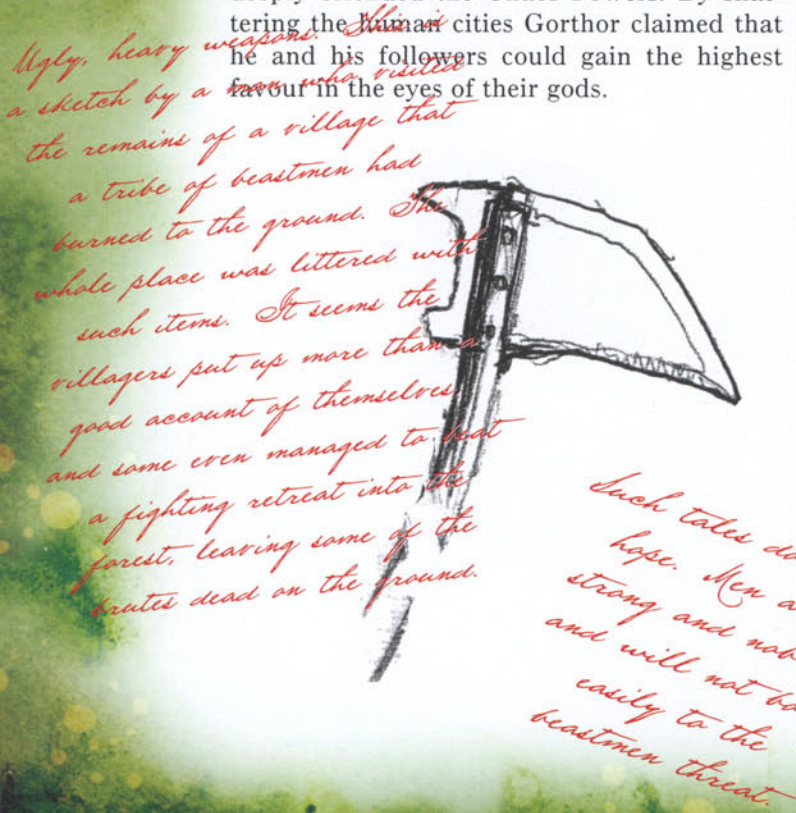 deeply offended the Chaos Powers. By shat-
tering the human cities Gorthor claimed that
he and his followers could gain the highest
favour in the eyes of their gods.
Ugly, heavy weapons. This is
a sketch by a man who visited
the remains of a village that
a tribe of beastmen had
burned to the ground. The
whole place was littered with
such items. It seems the
villagers put up more than a
good account of themselves,
and some even managed to beat
a fighting retreat into the
forest, leaving some of the
brutes dead on the ground.
Such tales do
hope. Men a
strong and nob
and will not bo
easily to the
beastmen threat.